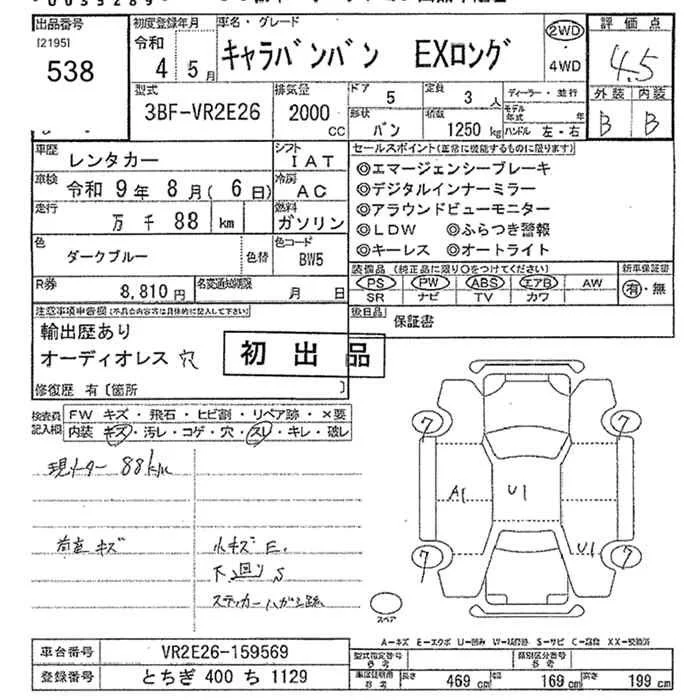 出品番号
[2195]
538
初度登録年月
令和
4 5月
車名・グレード
キャラバンバン EXロング
2WD
4WD
評価点
4.5
外装 内装
B B
型式
3BF-VR2E26
排気量
2000
CC
ドア
5
定員
3人
形状
バン
積数
1250kg
ディーラー・並行
モデル
年式 年
ハンドル 左・右
車歴
レンタカー
シフト
IAT
車検
令和 9年 8月(6日)
冷房
AC
走行
万 千 88 km
燃料
ガソリン
色
ダークブルー
色替
色コード
BW5
R券
8,810円
名変通知期限
月 日
セールスポイント(正常に機能するものに限ります)
◎エマージェンシーブレーキ
◎デジタルインナーミラー
◎アラウンドビューモニター
◎LDW ◎ふらつき警報
◎キーレス ◎オートライト
装備品 (純正品に限り○をつけてください)
PS PW ABS エアB AW
SR ナビ TV カワ
新車保証書
有・無
後日品
保証書
注意事項申告欄(不具合内容等は具体的に記入して下さい)
輸出歴あり
オーディオレス 穴
初出品
修復歴 有〔箇所 〕
検査員
記入欄
FW キズ・飛石・ヒビ割・リペア跡・×要
内装 キズ・汚レ・コゲ・穴・スレ・キレ・破レ
現メーター 88km
荷室 キズ
小キズ E.
下廻り S
ステッカーハガシ跡
7 7
A1 U1
U1
7 7
スペア
A−キズ E−エクボ U−凹み W−補修跡 S−サビ C−腐食 XX−交換済
車台番号
VR2E26-159569
登録番号
とちぎ 400 ち 1129
型式指定番号
参考
類別区分番号
参考
車庫証明用
参考
長さ 469cm
幅 169cm
高さ 199cm